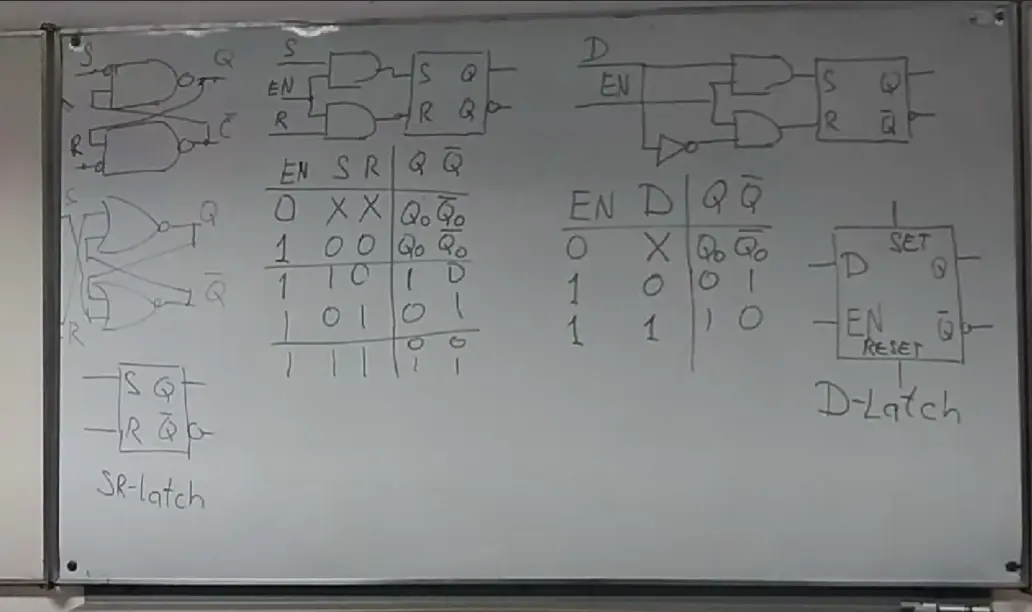 S Q
R
S Q
R Q̅
S Q
R Q̅
SR-latch
S
EN
R
S Q
R Q
EN S R Q Q̅
0 X X Q₀ Q̅₀
1 0 0 Q₀ Q̅₀
1 1 0 1 0
1 0 1 0 1
0 0
1 1 1 1 1
D
EN
S Q
R Q̅
EN D Q Q̅
0 X Q₀ Q̅₀
1 0 0 1
1 1 1 0
SET
D Q
EN Q̅
RESET
D-Latch